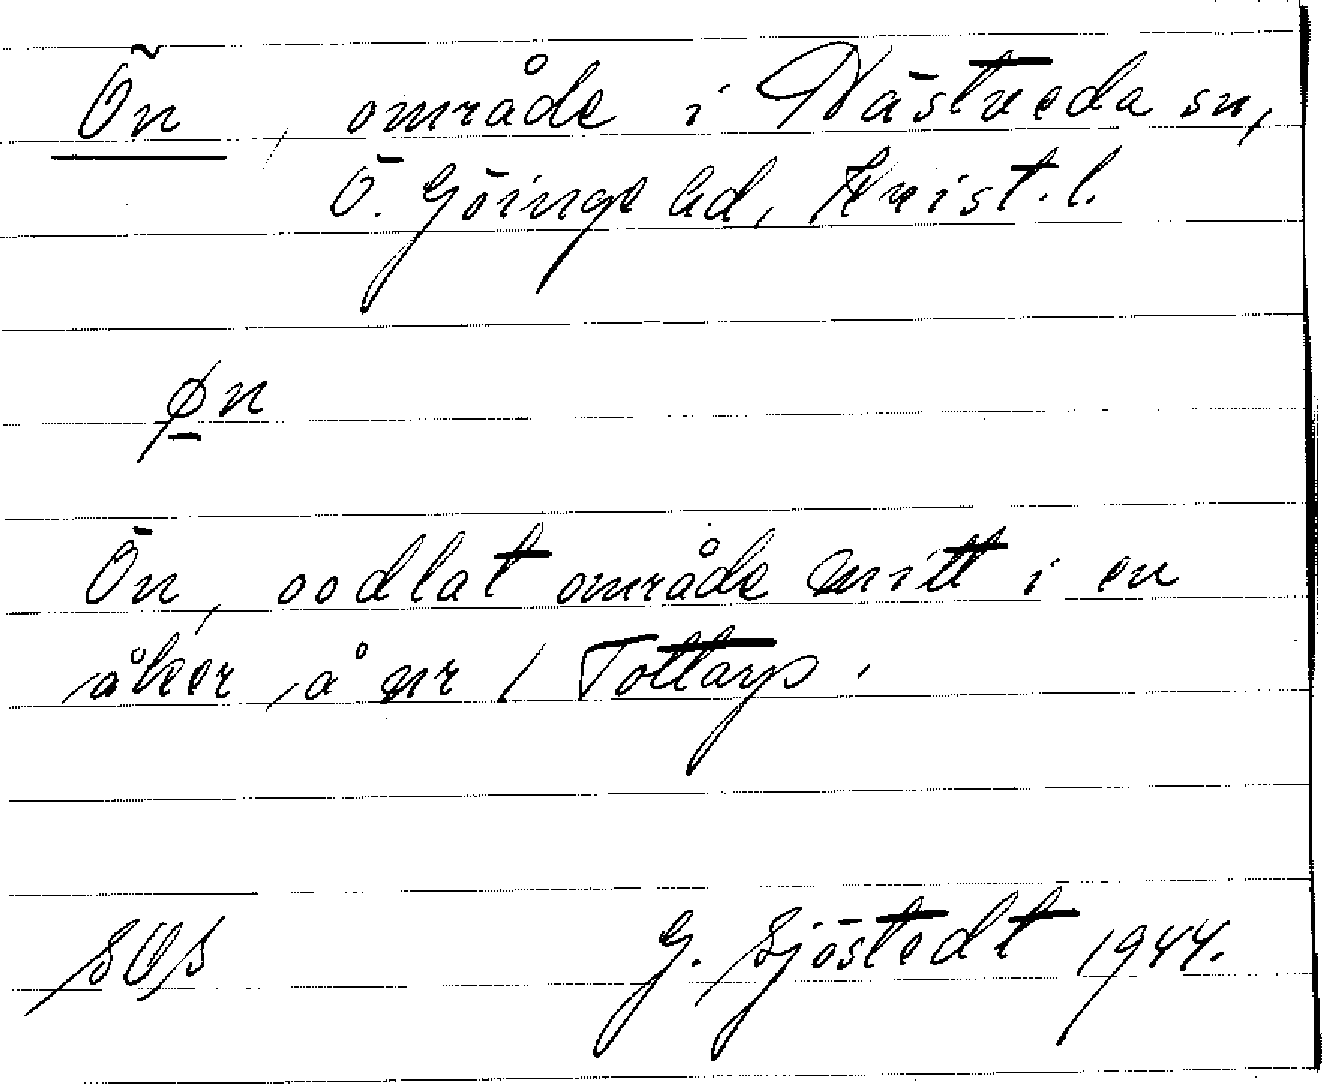 Ön, område i Nästveda sn,
Ö. Göinge hd, Krist. l.
øn
Ön, oodlat område mitt i en
åker å nr 1 Tottarp.
SOS G. Sjöstedt 1944.